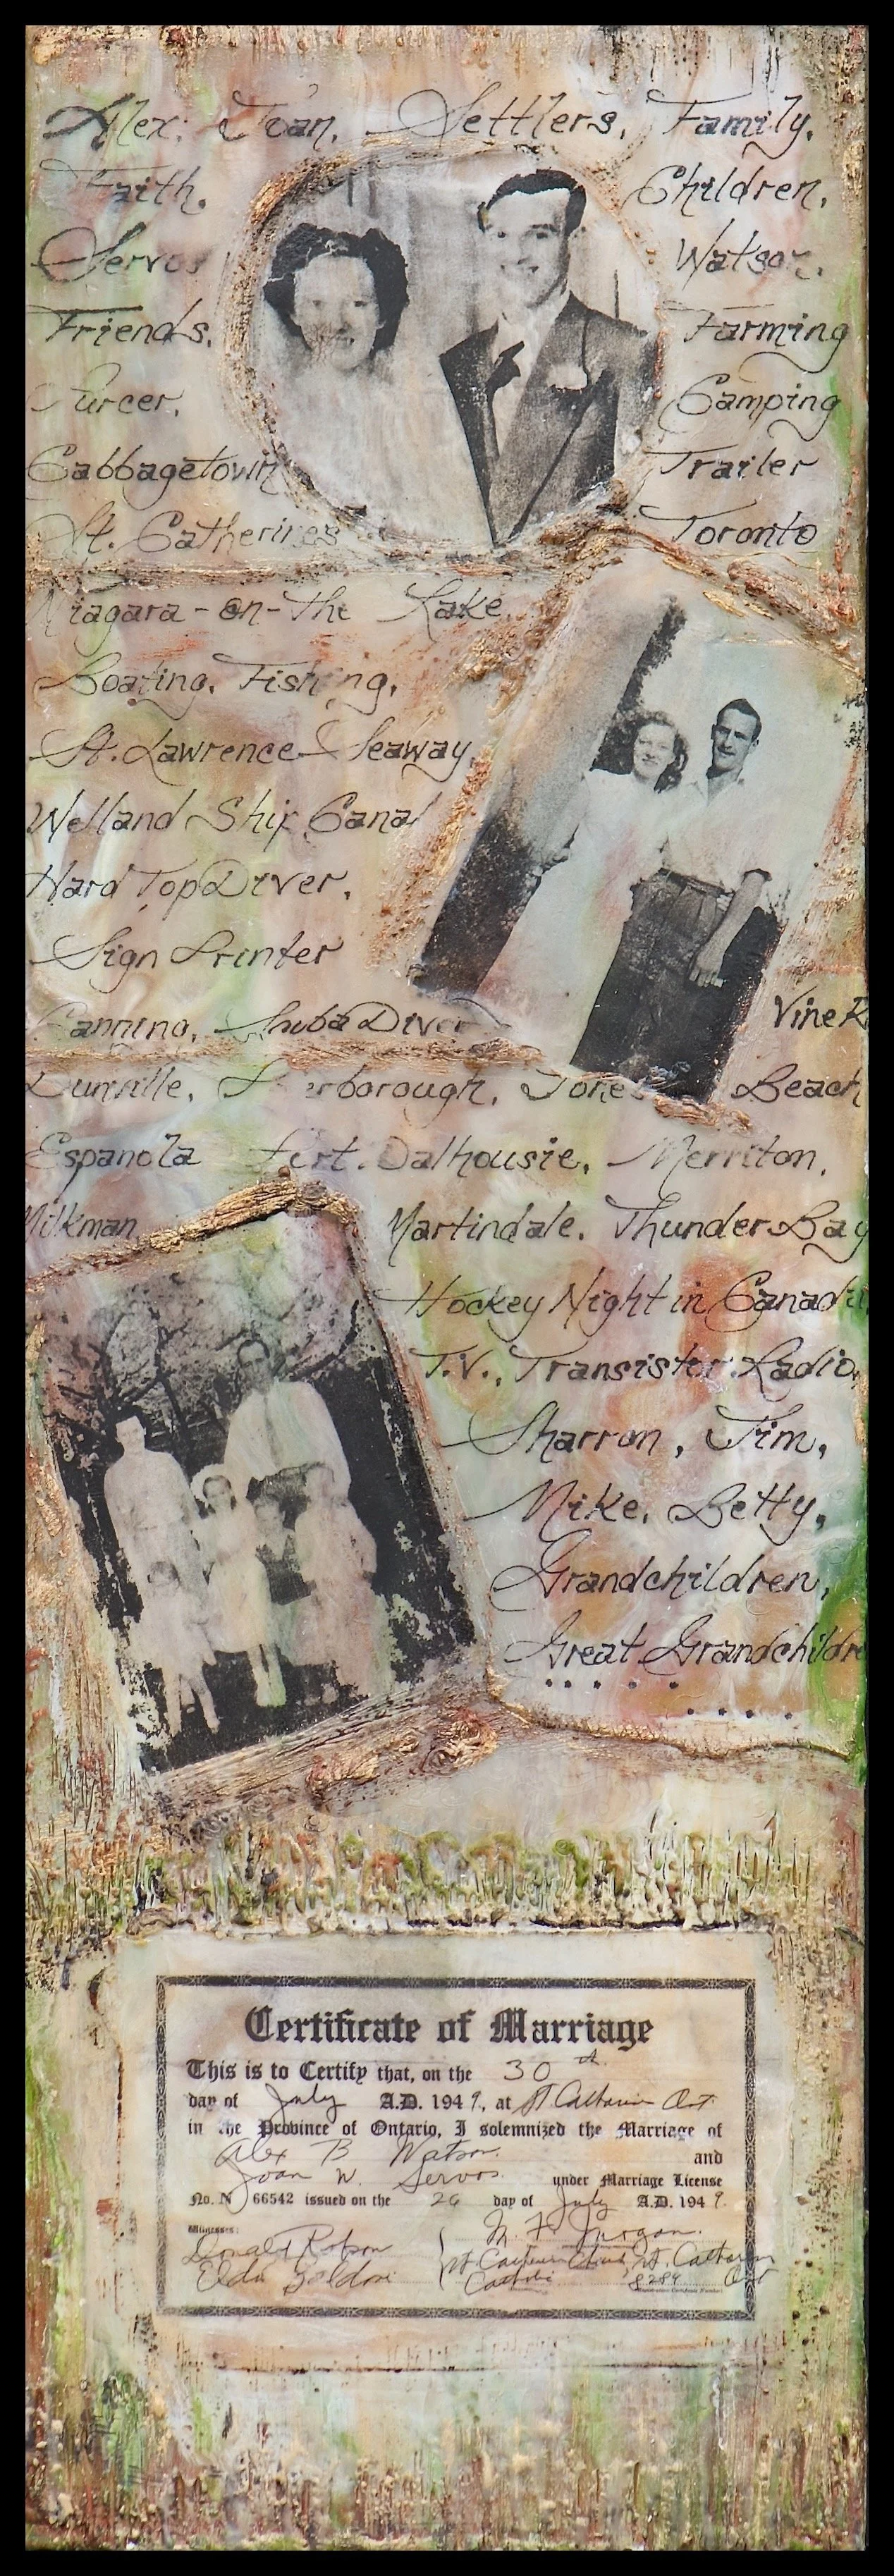 Alex. Joan. Settlers. Family.
Faith. Children.
Servos Watson.
Friends. Farming
Camping
Cabbagetown Trailer
St. Catherines Toronto
Niagara-on-the Lake.
Boating. Fishing.
St. Lawrence Seaway.
Welland Ship Canal
Hard Top Driver.
Sign Printer
Canning. Shuba Diver Vine R
Dunville. Jones Beach
Espanola Fort. Dalhousie. Merriton.
Milkman Martindale. Thunder Bay
Hockey Night in Canada
T.V., Transistor Radio,
Sharron, Jim,
Mike. Betty,
Grandchildren,
Great Grandchildre
.....
.....
Certificate of Marriage
This is to Certify that, on the 30th
day of July A.D. 1949, at St Catharines Ont
in the Province of Ontario, I solemnized the Marriage of
Alex B Watson and
Joan W. Servos under Marriage License
No. N 66542 issued on the 26 day of July A.D. 1949.
Witnesses:
Donald
Elda St. Catharines
8289 Ont